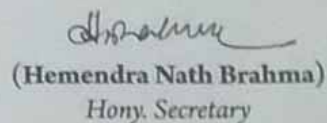 (Hemendra Nath Brahma)
Hony. Secretary